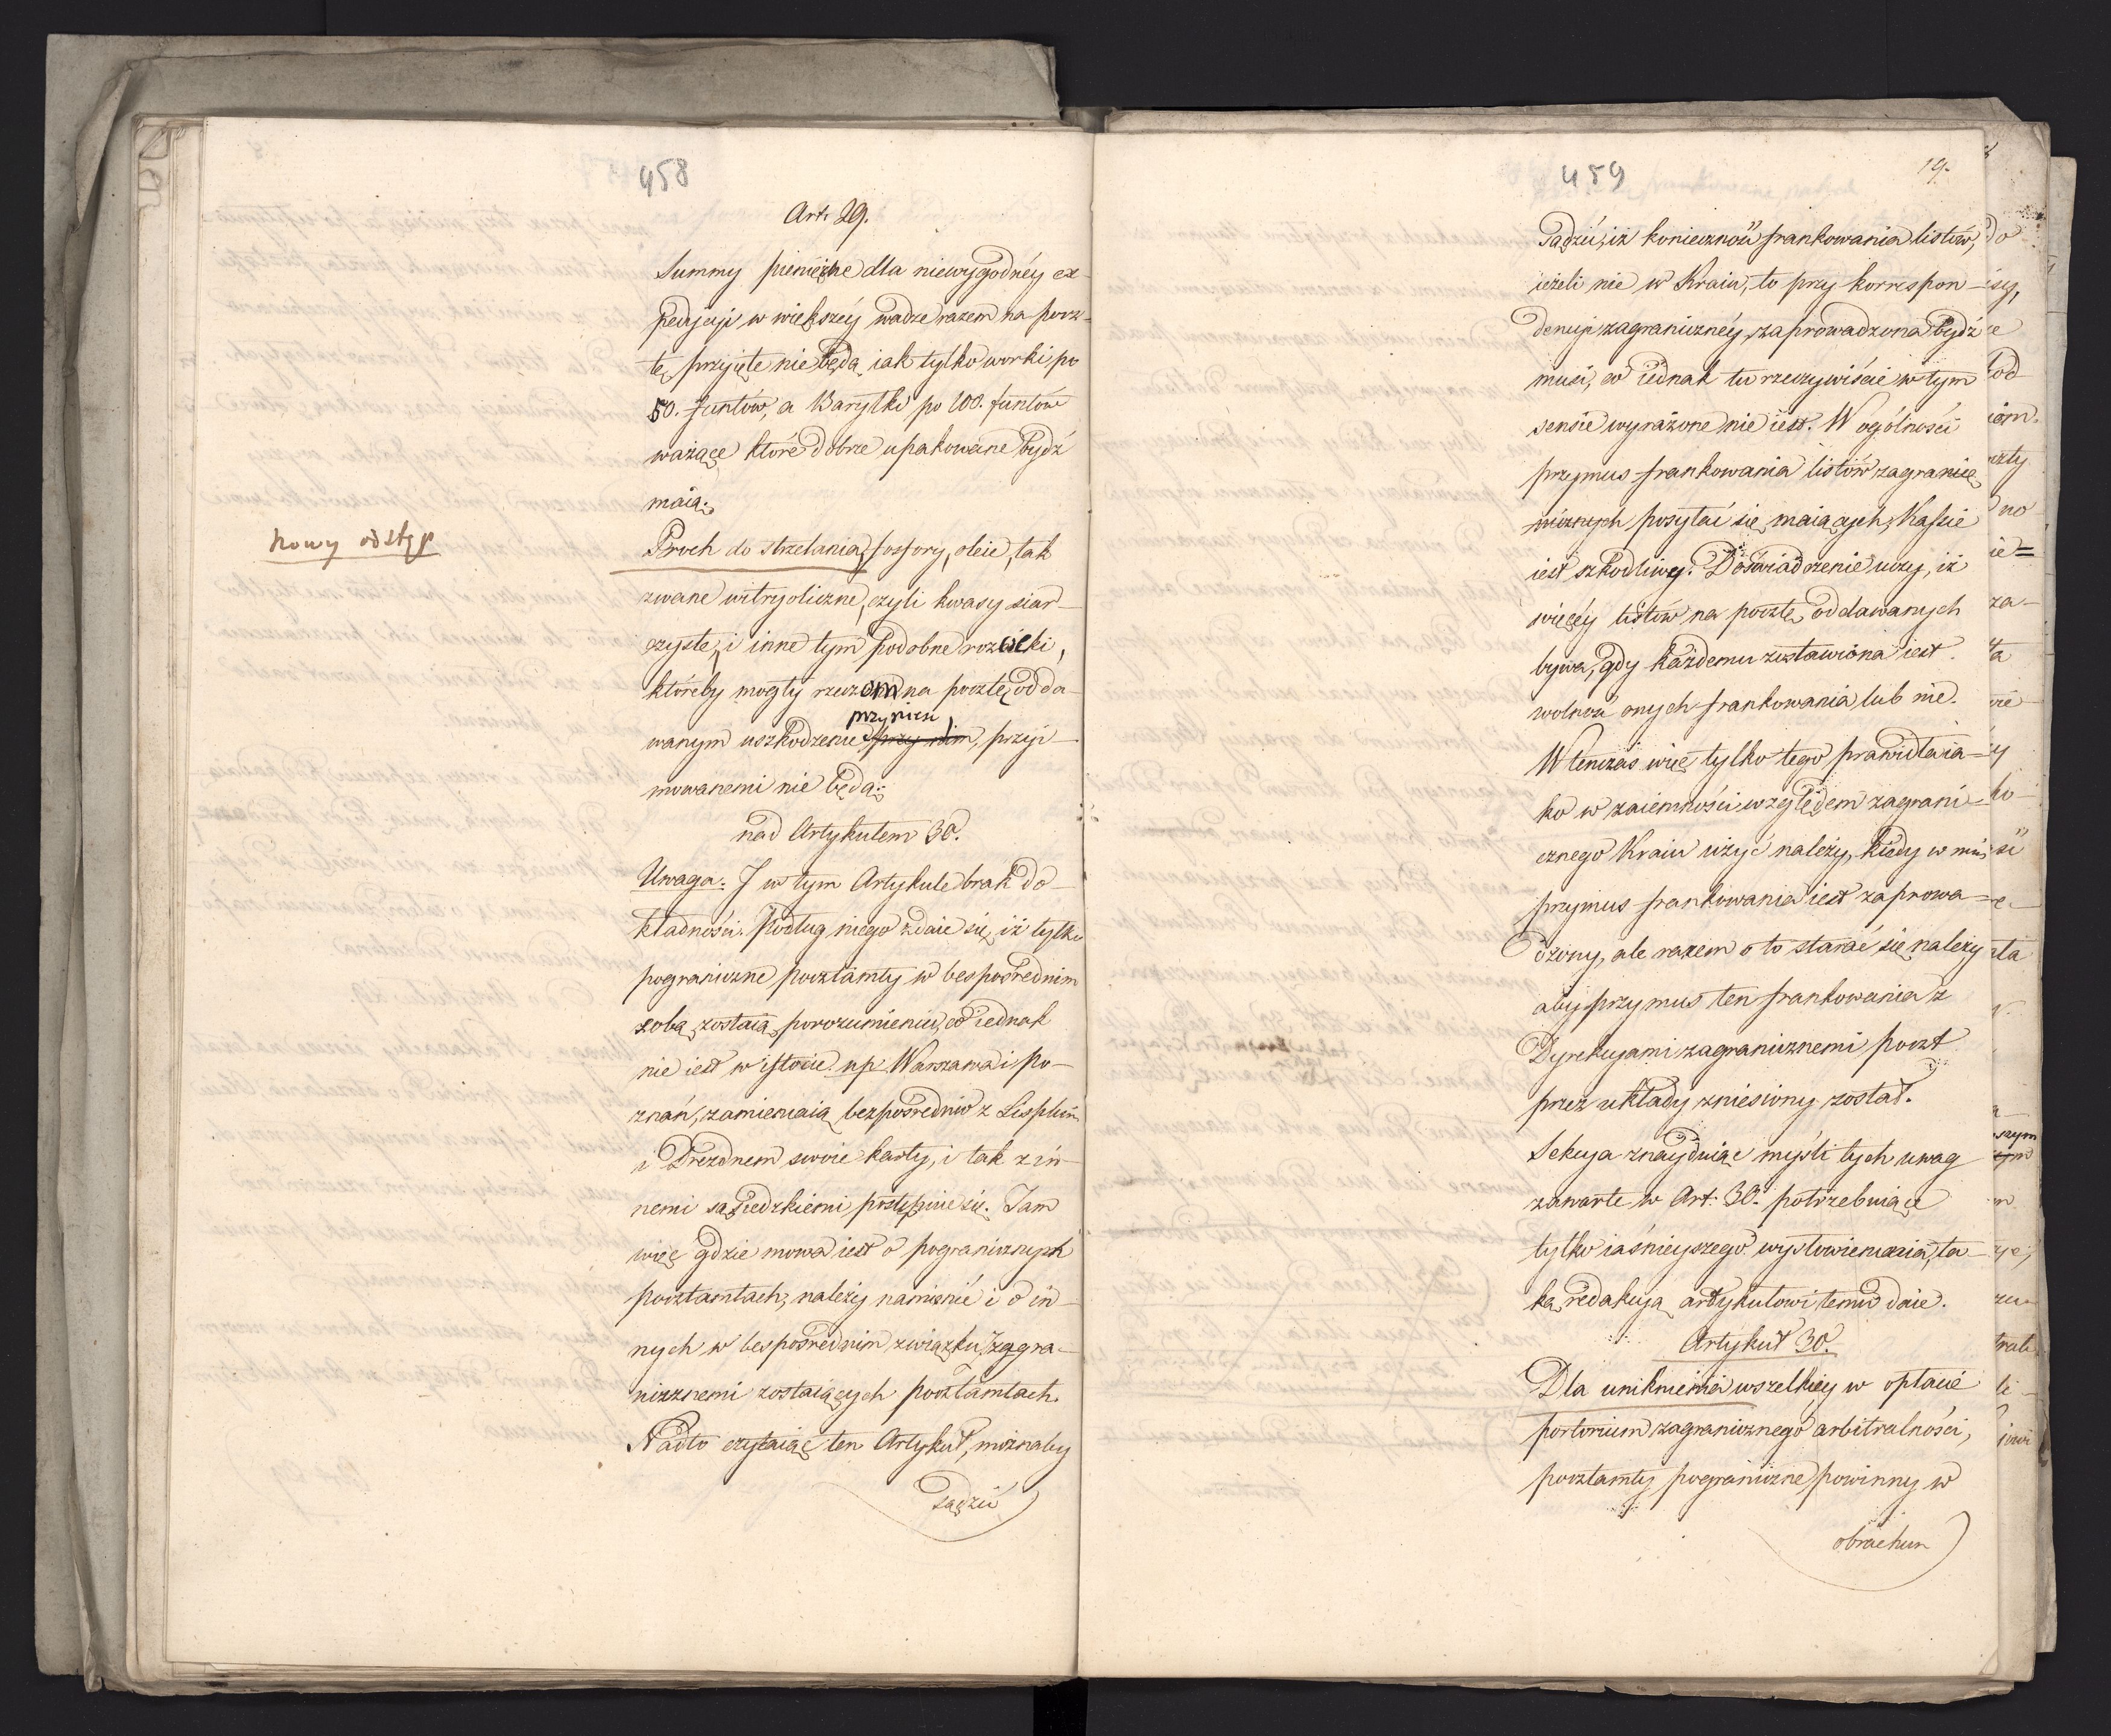 458
Art. 29.
Summy pieniężne dla niewygodnéy ex-
pedycyi w większéy wadze razem na pocz-
tę przyięte nie będą iak tylko worki po
50. funtów, a Baryłki po 100. funtów
ważące które dobrze upakowane bydź
maią.
nowy odstęp
Proch do strzelania, fosfory, oleie, tak
zwane witryoliczne, czyli kwasy siar-
czyste, i inne tym podobne rozcieki,
któreby mogły rzeczom na pocztę odda-
przynieść
wanym uszkodzenie przy nim, przyi-
mowanemi nie będą.
nad Artykułem 30.
Uwaga. J w tym Artykule brak do-
kładności. Podług niego zdaie się, iż tylko
pograniczne pocztamty w bespośrednim
z sobą zostaią porozumieniu, co iednak
nie iest w istocie. np. Warszawa i Po-
znań, zamieniaią bezpośrednio z Lispkiem
i Dreznem swoie karty, i tak z in-
nemi sąsiedzkiemi postępuie się. Tam
więc gdzie mowa iest o pogranicznych
pocztamtach, należy namienić i o in-
nych w bespośrednim związku z zagra-
nicznemi zostaiących pocztamtach.
Nadto czytaiąc ten Artykuł, możnaby
sądzić
459
19.
sądzić, iż konieczność frankowania listów,
ieżeli nie w Kraiu, to przy korrespon-
dencyi zagranicznéy, zaprowadzona bydź
musi, co iednak tu rzeczywiście w tym
sensie wyrażone nie iest. W ogólności
przymus frankowania listów zagranicę
posyłać się maiących, Kassie
iest szkodliwy. Doświadczenie uczy, iż
więcéy listów na pocztę oddawanych
bywa, gdy każdemu zostawiona iest
wolność onych frankowania lub nie.
Wtenczas więc tylko tego prawidła ia-
ko w zaiemności względem zagrani-
cznego Kraiu użyć należy, kiedy w nim
przymus frankowania iest zaprowa-
dzony, ale razem o to starać się należy
aby przymus ten frankowania z
Dyrekcyami zagranicznemi poczt
przez układy zniesiony został.
Sekcya znayduiąc myśli tych uwag
zawarte w Art: 30. potrzebuiące
tylko iaśnieyszego wysłowienia, ta-
ką redakcyą artykułowi temu daie.
Artykuł 30.
Dla uniknienia wszelkiey w opłacie
portorium zagranicznego arbitralności,
pocztamty pograniczne powinny w
obrachun